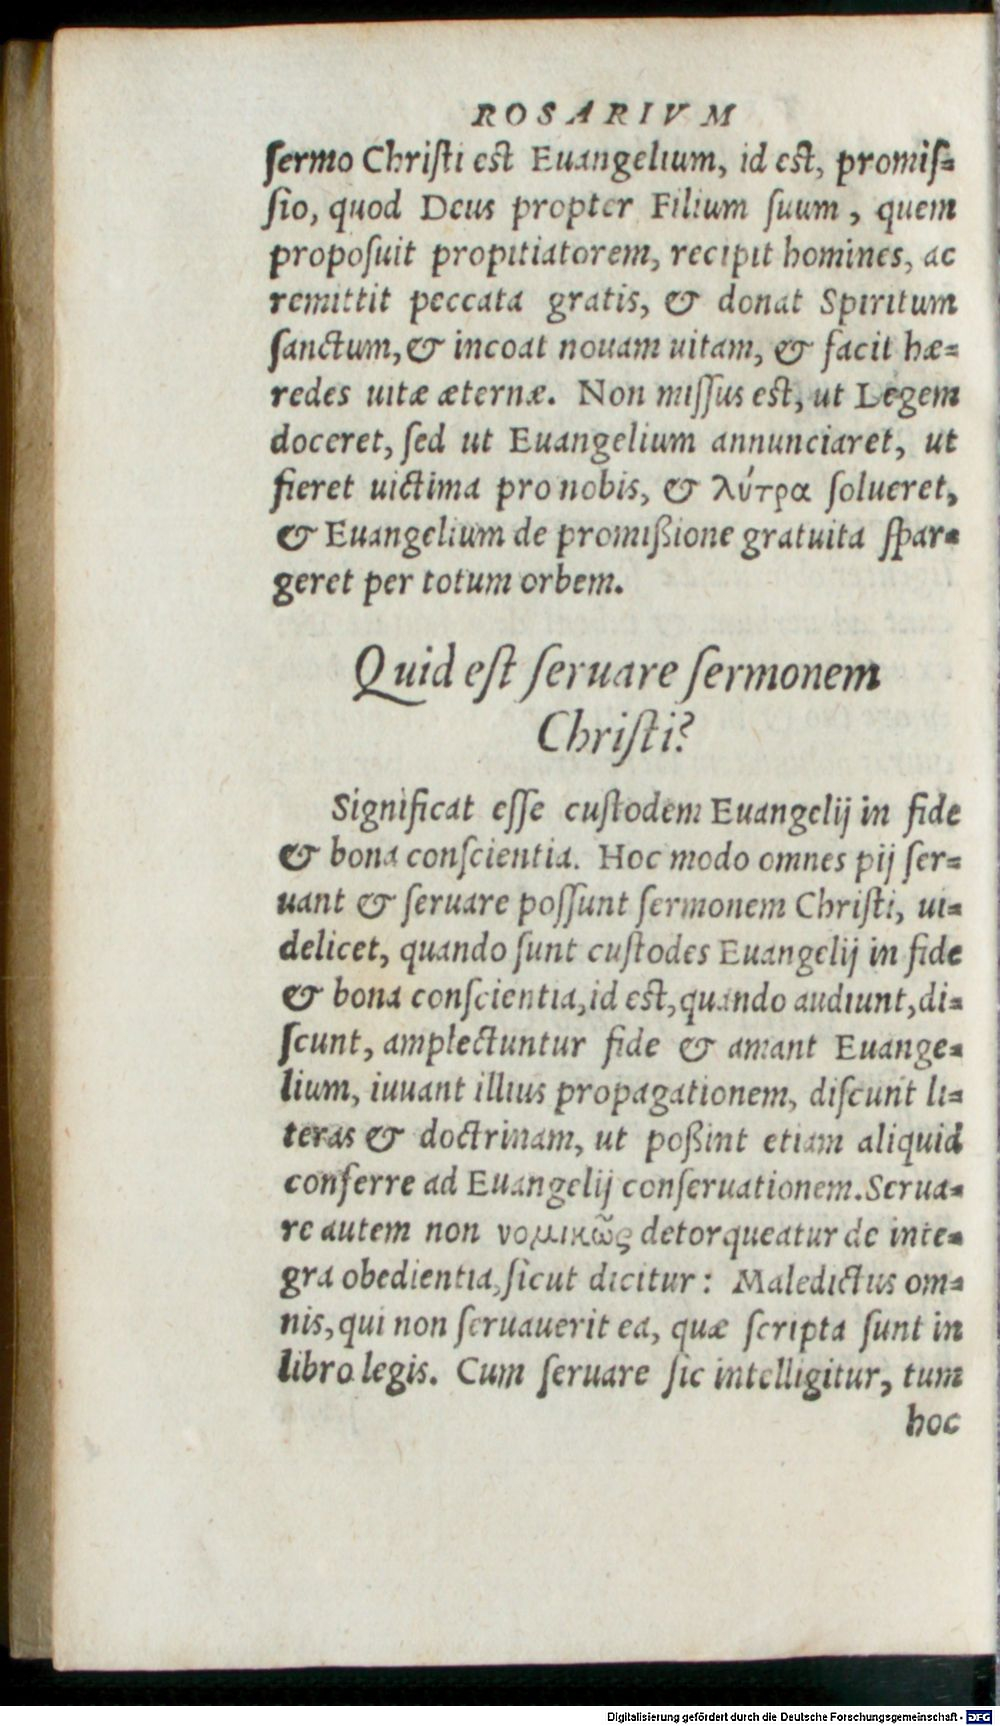 ROSARIVM
ſermo Chriſti est Euangelium, id est, promiſ=
ſio, quod Deus propter Filium ſuum, quem
propoſuit propitiatorem, recipit homines, ac
remittit peccata gratis, & donat Spiritum
ſanctum, & incoat nouam uitam, & facit hæ=
redes uitæ æternæ. Non miſſus est, ut Legem
doceret, ſed ut Euangelium annunciaret, ut
fieret uictima pro nobis, & λύτρα ſolueret,
& Euangelium de promißione gratuita ſpar=
geret per totum orbem.
Quid eſt ſeruare ſermonem
Chriſti?
Significat eſſe cuſtodem Euangelij in fide
& bona conſcientia. Hoc modo omnes pij ſer=
uant & ſeruare poſſunt ſermonem Chriſti, ui=
delicet, quando ſunt cuſtodes Euangelij in fide
& bona conſcientia, id est, quando audiunt, di=
ſcunt, amplectuntur fide & amant Euange=
lium, iuuant illius propagationem, diſcunt li=
teras & doctrinam, ut poßint etiam aliquid
conferre ad Euangelij conſeruationem. Serua=
re autem non νομικῶς detorqueatur de inte=
gra obedientia, ſicut dicitur: Maledictus om=
nis, qui non ſeruauerit ea, quæ ſcripta ſunt in
libro legis. Cum ſeruare ſic intelligitur, tum
hoc
Digitalisierung gefördert durch die Deutsche Forschungsgemeinschaft - DFG